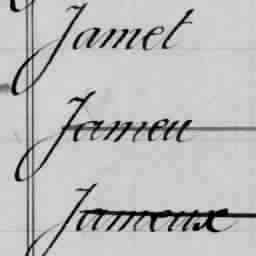 Jamet
Jameu
Jameux